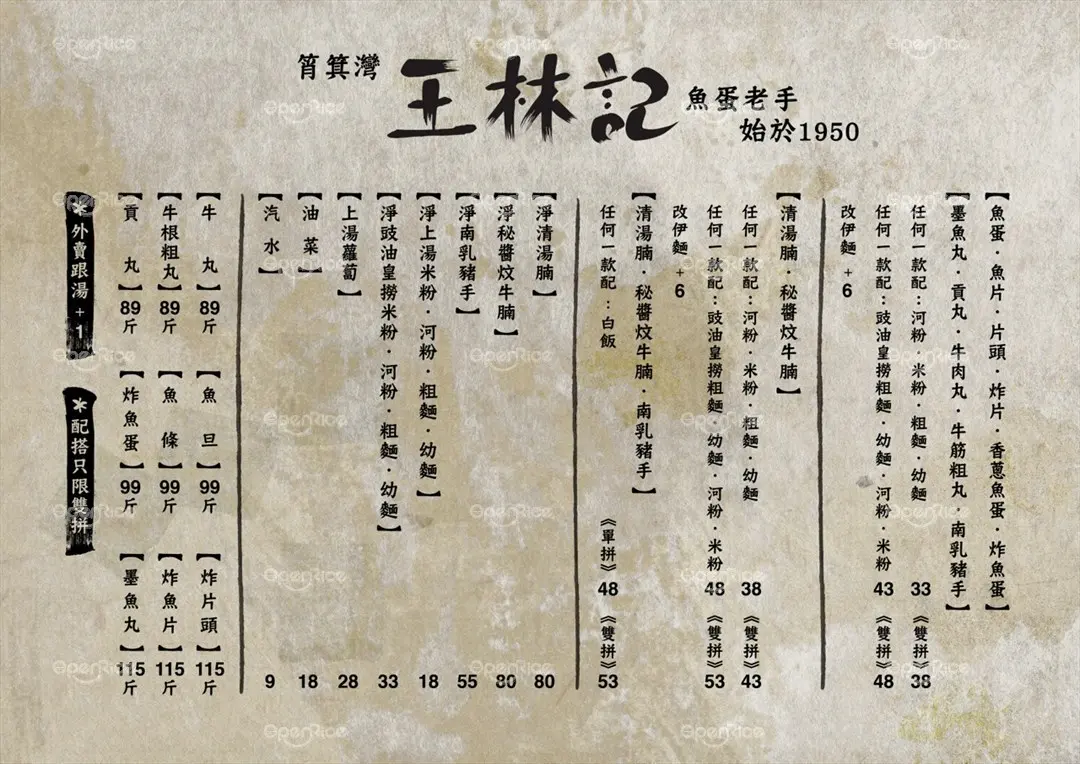 筲箕灣
王林記
魚蛋老手
始於1950
【魚蛋·魚片·片頭·炸片·香蔥魚蛋·炸魚蛋】
【墨魚丸·貢丸·牛肉丸·牛筋粗丸·南乳豬手】
任何一款配：河粉·米粉·粗麵·幼麵 33 《雙拼》 38
任何一款配：豉油皇撈粗麵·幼麵·河粉·米粉 43 《雙拼》 48
改伊麵 +6
【清湯腩·秘醬炆牛腩】
任何一款配：河粉·米粉·粗麵·幼麵 38 《雙拼》 43
任何一款配：豉油皇撈粗麵·幼麵·河粉·米粉 48 《雙拼》 53
改伊麵 +6
【清湯腩·秘醬炆牛腩·南乳豬手】
任何一款配：白飯 《單拼》 48 《雙拼》 53
【淨清湯腩】 80
【淨秘醬炆牛腩】 80
【淨南乳豬手】 55
【淨上湯米粉·河粉·粗麵·幼麵】 18
【淨豉油皇撈米粉·河粉·粗麵·幼麵】 33
【上湯蘿蔔】 28
【油菜】 18
【汽水】 9
【牛丸】89斤 【魚旦】99斤 【炸片頭】115斤
【牛根粗丸】89斤 【魚條】99斤 【炸魚片】115斤
【貢丸】89斤 【炸魚蛋】99斤 【墨魚丸】115斤
*外賣跟湯+1
*配搭只限雙拼
OpenRice